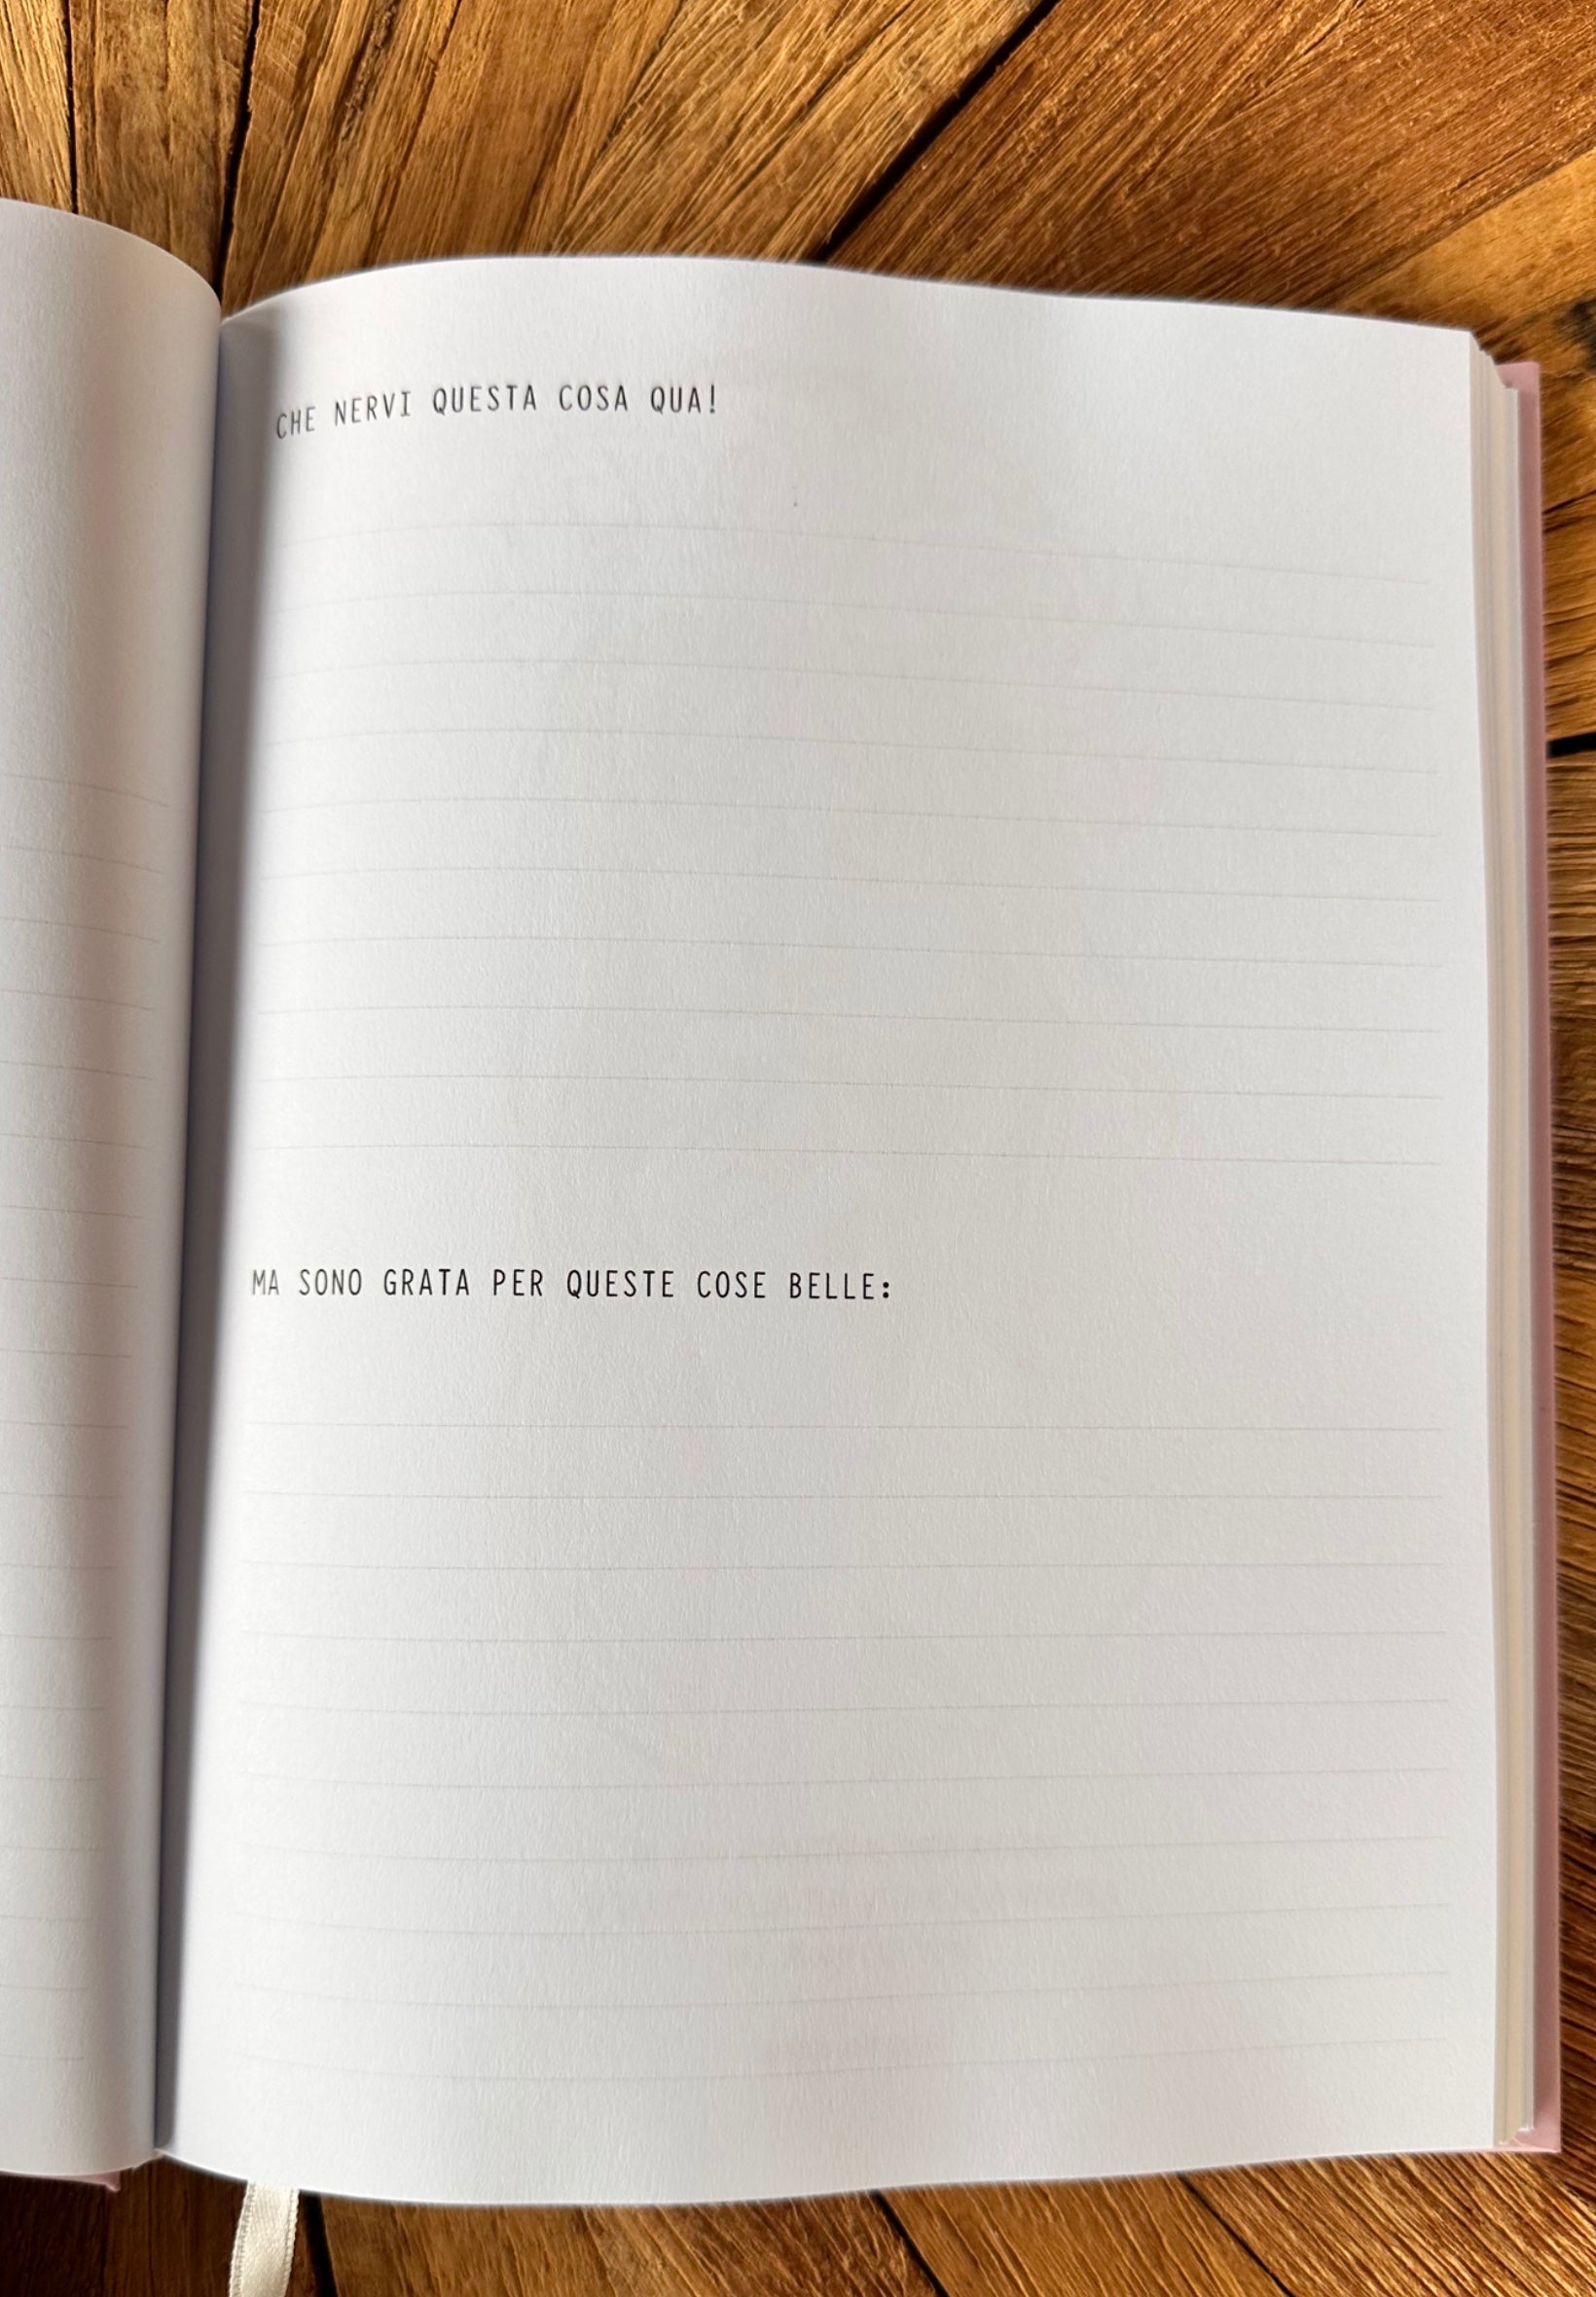 CHE NERVI QUESTA COSA QUA!
MA SONO GRATA PER QUESTE COSE BELLE: